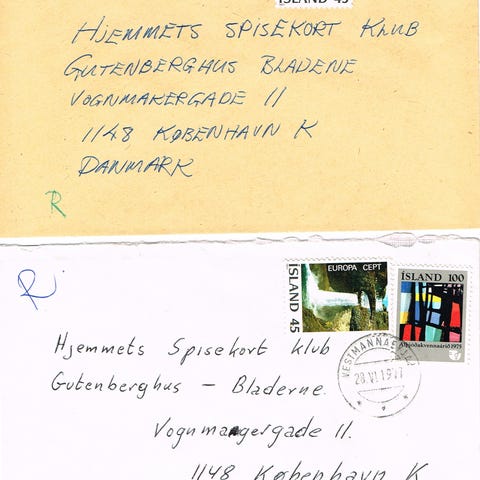 ÍSLAND 45
HJEMMETS SPISEKORT KLUB
GUTENBERGHUS BLADENE
VOGNMAKERGADE 11
1148 KØBENHAVN K
DANMARK
R
R
ÍSLAND 45
EUROPA CEPT
ÍSLAND 100
Alþjóðakvennaárið 1975
VESTMANNAEYJAR
28.VI.1977
Hjemmets Spisekort klub
Gutenberghus - Bladerne.
Vognmangergade 11.
1148 København K